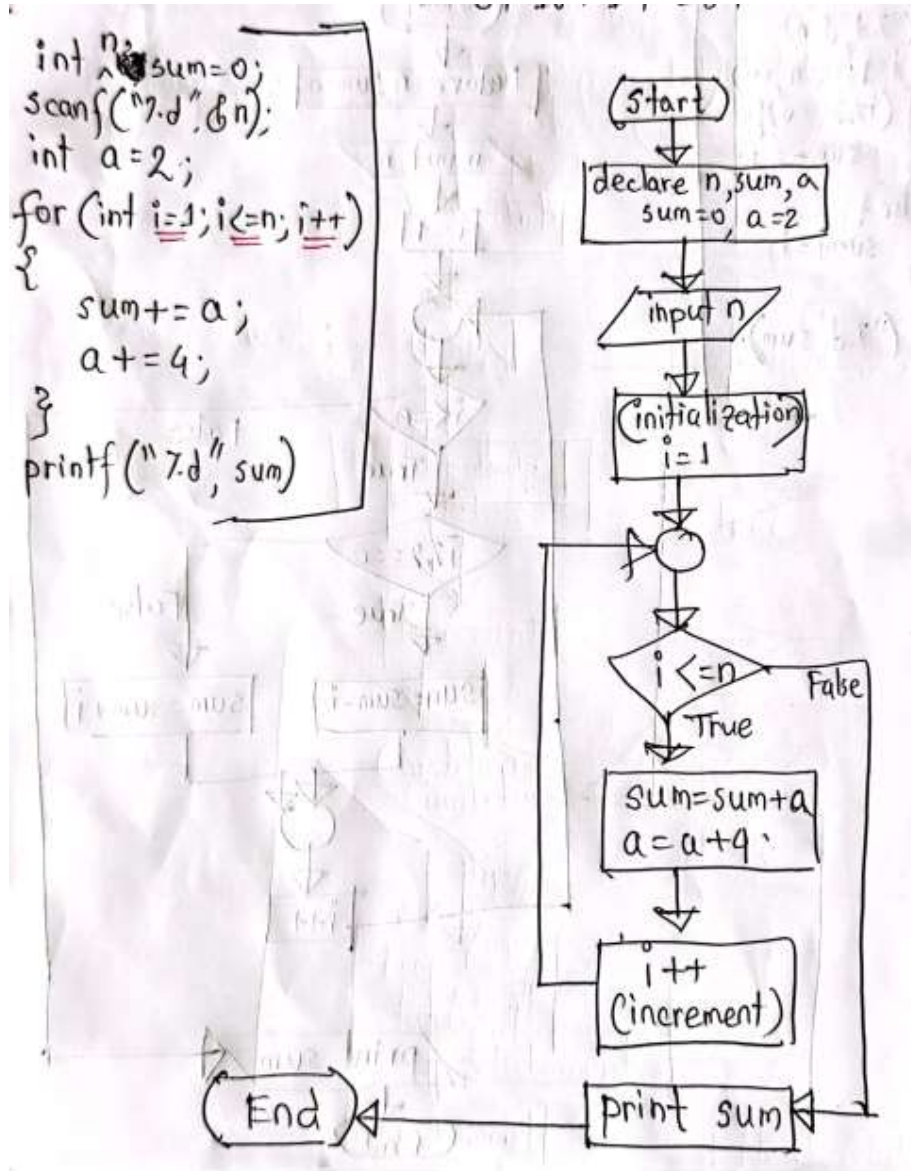 int n, sum=0;
scanf("%d",&n);
int a=2;
for (int i=1; i<=n; i++)
{
sum+= a;
a+=4;
}
printf("%d", sum)
Start
declare n, sum, a
sum=0, a=2
input n
(initialization)
i=1
i<=n
False
True
sum=sum+a
a=a+4
i++
(increment)
print sum
End